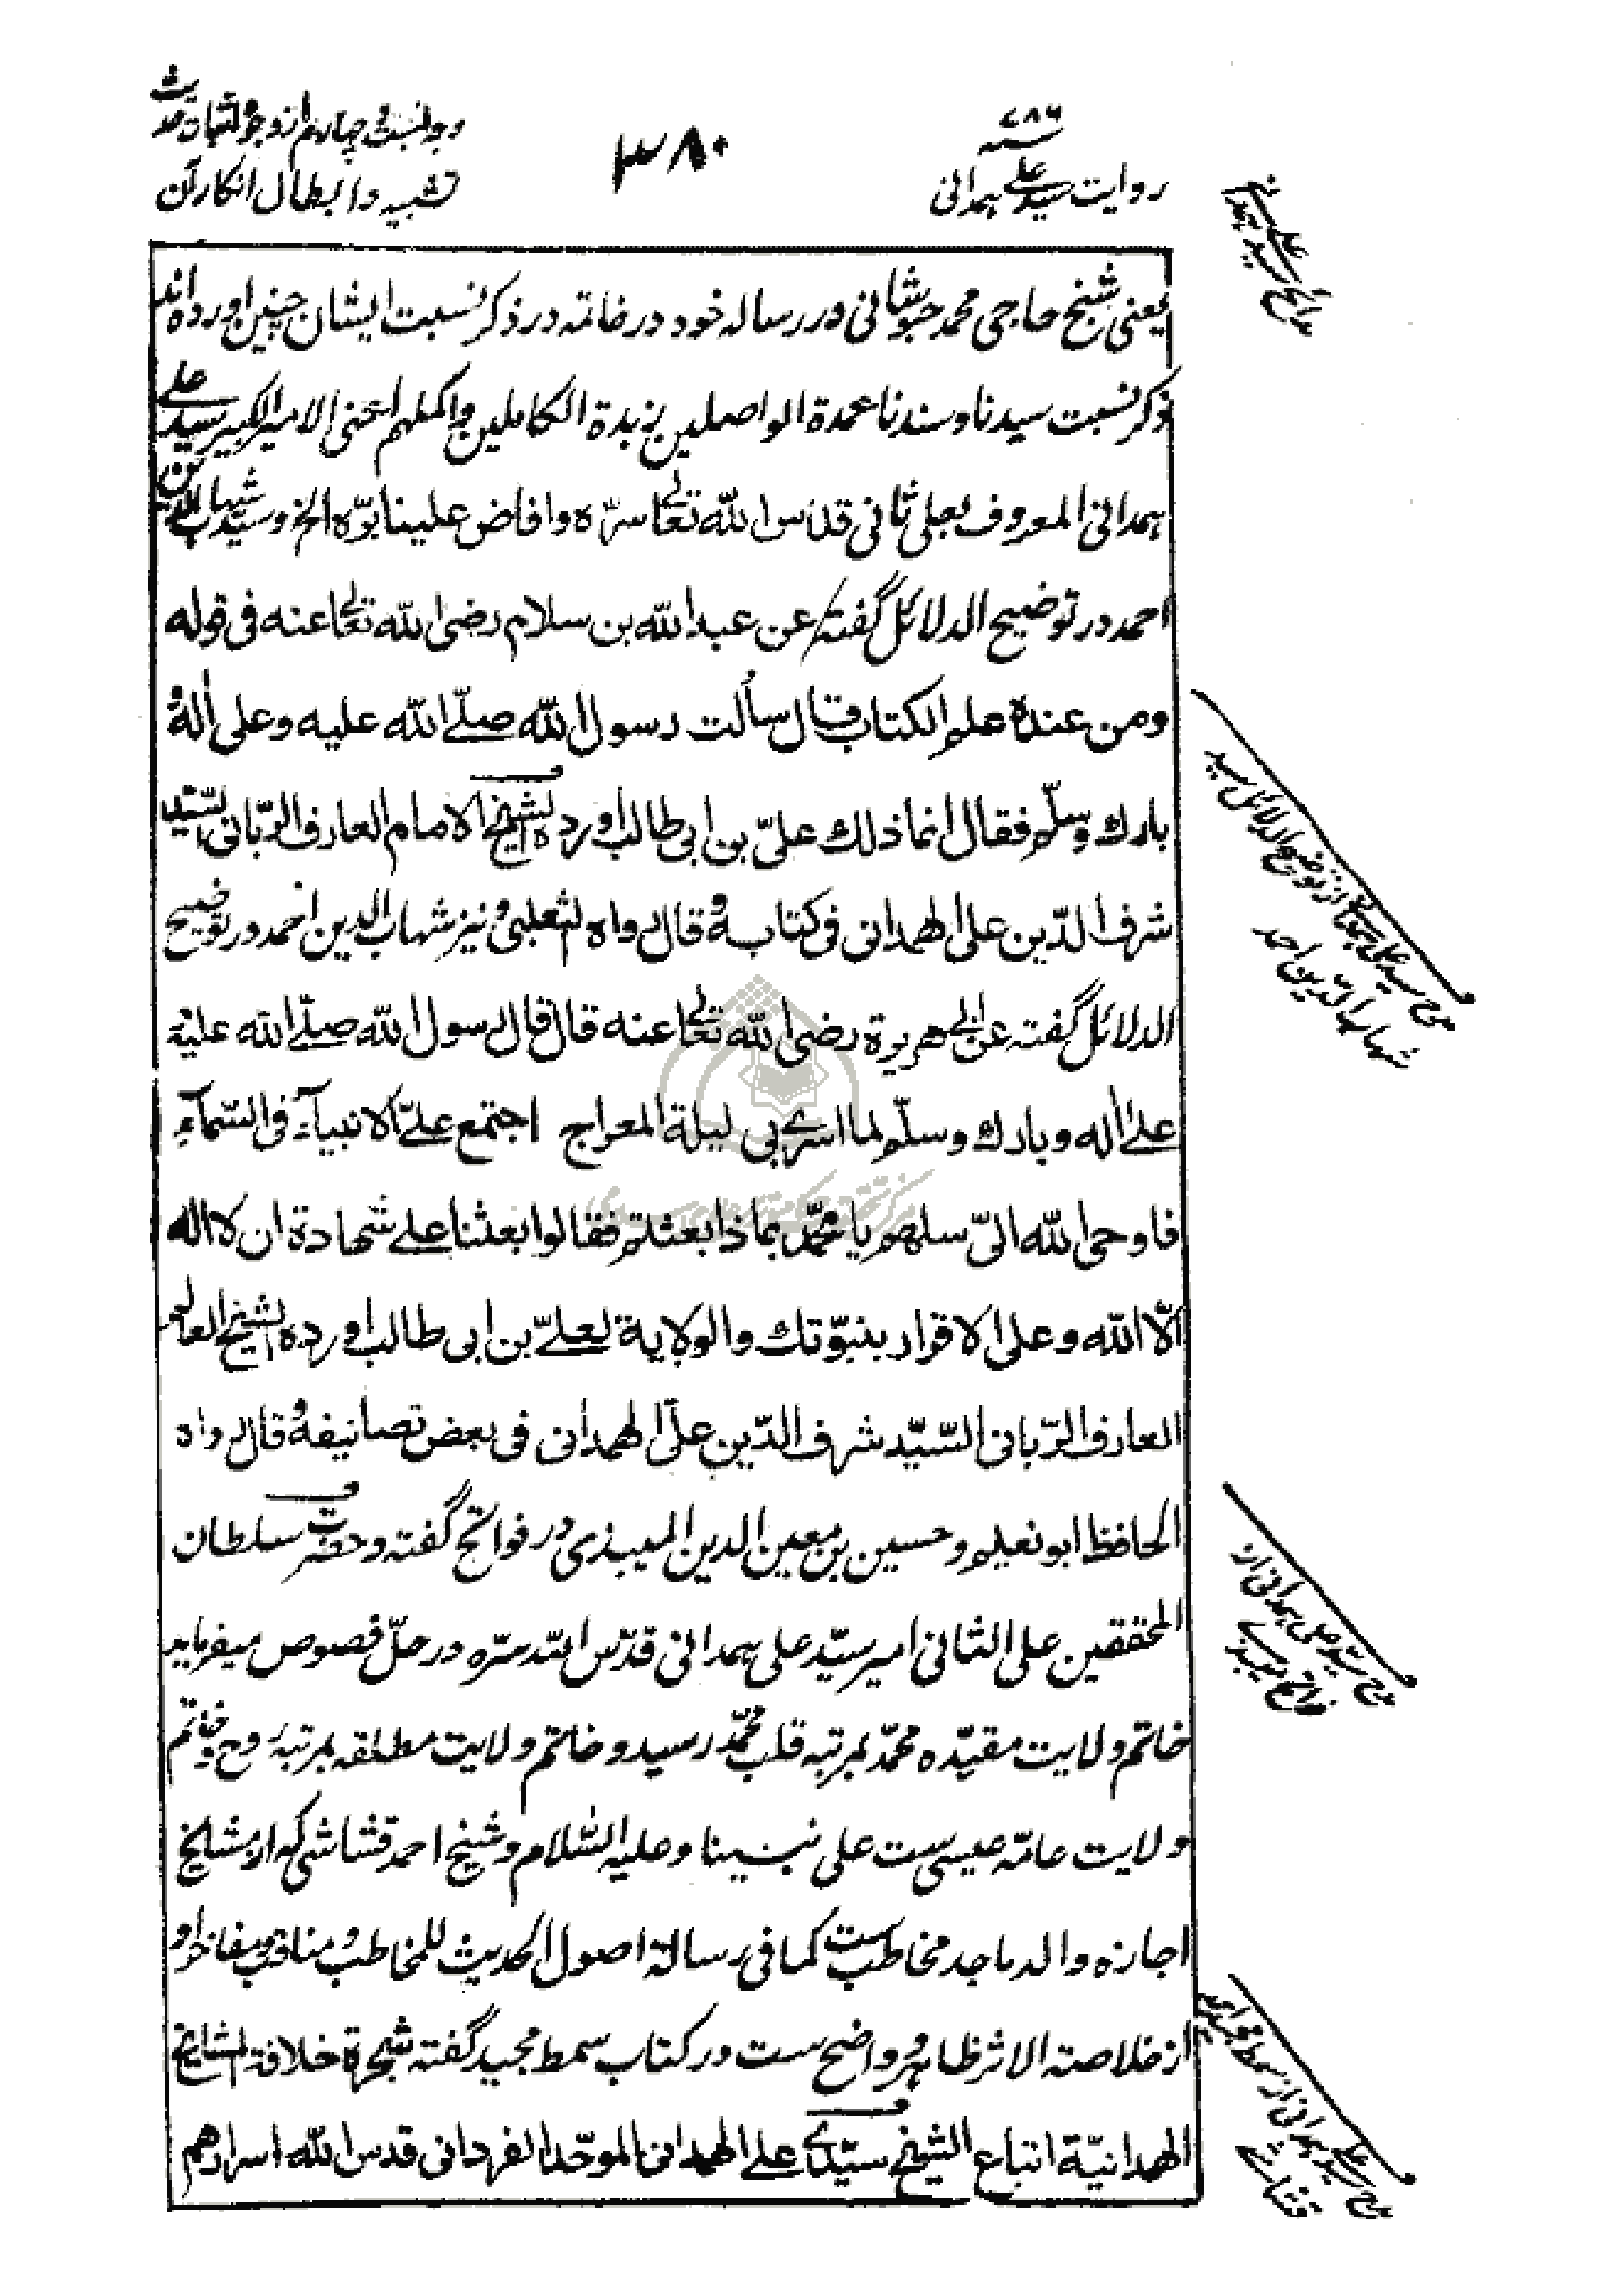 وجه بست و چهارم از وجوه اثبات حدیث
تشبیه و ابطال انکار آن
۳۸۰
۷۸۶ سنه
روایت سید علی همدانی
مدائح سید علی همدانی
یعنی شیخ حاجی محمد خبوشانی در رساله خود در خاتمه در ذکر نسبت ایشان چنین اورده اند
ذکر نسبت سیدنا و سندنا عمدة الواصلین زبدة الکاملین واکملهم اعنی الامیر الکبیر سید علی
همدانی المعروف بعلی ثانی قدس الله تعالی سرّه وافاض علینا برّه الخ و سید شهاب الدین
احمد در توضیح الدلائل گفته عن عبد الله بن سلام رضی الله تعالی عنه فی قوله
ومن عنده علم الکتاب قال سألت رسول الله صلّی الله علیه وعلی اله و
بارك وسلّم فقال انما ذلك علیّ بن ابی طالب اورده الشیخ الامام العارف الربّانی السیّد
شرف الدّین علی الهمدانی فی کتابه وقال رواه الثعلبی و نیز شهاب الدین احمد در توضیح
الدلائل گفته عن ابی هریرة رضی الله تعالی عنه قال قال رسول الله صلّی الله علیه و
علی اله وبارك وسلّم لما اسری بی لیلة المعراج اجتمع علیّ الانبیآء فی السّمآء
فاوحی الله الیّ سلهم یا محمّد بماذا بعثتم فقالوا بعثنا علی شهادة ان لا اله
الّا الله وعلی الاقرار بنبوّتك والولایة لعلیّ بن ابی طالب اورده الشیخ العالم
العارف الربّانی السّیّد شرف الدّین علی الهمدانی فی بعض تصانیفه وقال رواه
الحافظ ابو نعیم و حسین بن معین الدین المیبذی در فواتح گفته و حضرت سلطان
المحققین علی الثانی امیر سیّد علی همدانی قدّس الله سرّه در حلّ فصوص میفرماید
خاتم ولایت مقیّده محمّد بمرتبه قلب محمّد رسید و خاتم ولایت مطلقه بمرتبه روح و خاتم
ولایت عامّه عیسی ست علی نبینا وعلیه السّلام و شیخ احمد قشاشی که از مشایخ
اجازه والد ماجد مخاطب ست کما فی رسالة اصول الحدیث للمخاطب و مناقب و مفاخر او
از خلاصة الاثر ظاهر و واضح ست در کتاب سمط مجید گفته شجرة خلافة المشایخ
الهمدانیّة اتباع الشیخ سیّدی علی الهمدانی الموحّد الفردانی قدس الله اسرارهم
مدح سید علی همدانی از توضیح الدلائل سید
شهاب الدین احمد
مدح سیّد علی همدانی از
فواتح میبذی
مدح سید علی همدانی از سمط مجید
قشاشی